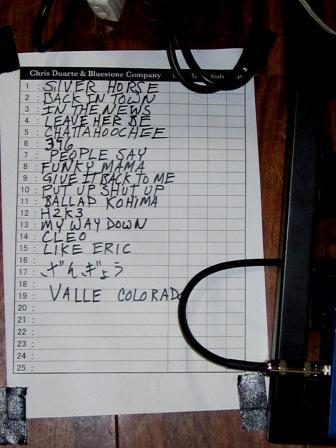 Chris Duarte & Bluestone Company
1 : SILVER HORSE
2 : BACK IN TOWN
3 : IN THE NEWS
4 : LEAVE HER BE
5 : CHATTAHOOCHEE
6 : 396
7 : PEOPLE SAY
8 : FUNKY MAMA
9 : GIVE IT BACK TO ME
10 : PUT UP SHUT UP
11 : BALLAD KOHIMA
12 : H2K3
13 : MY WAY DOWN
14 : CLEO
15 : LIKE ERIC
16 :
17 : ざんぎょう
18 :
19 : VALLE COLORADO
20 :
21 :
22 :
23 :
24 :
25 :